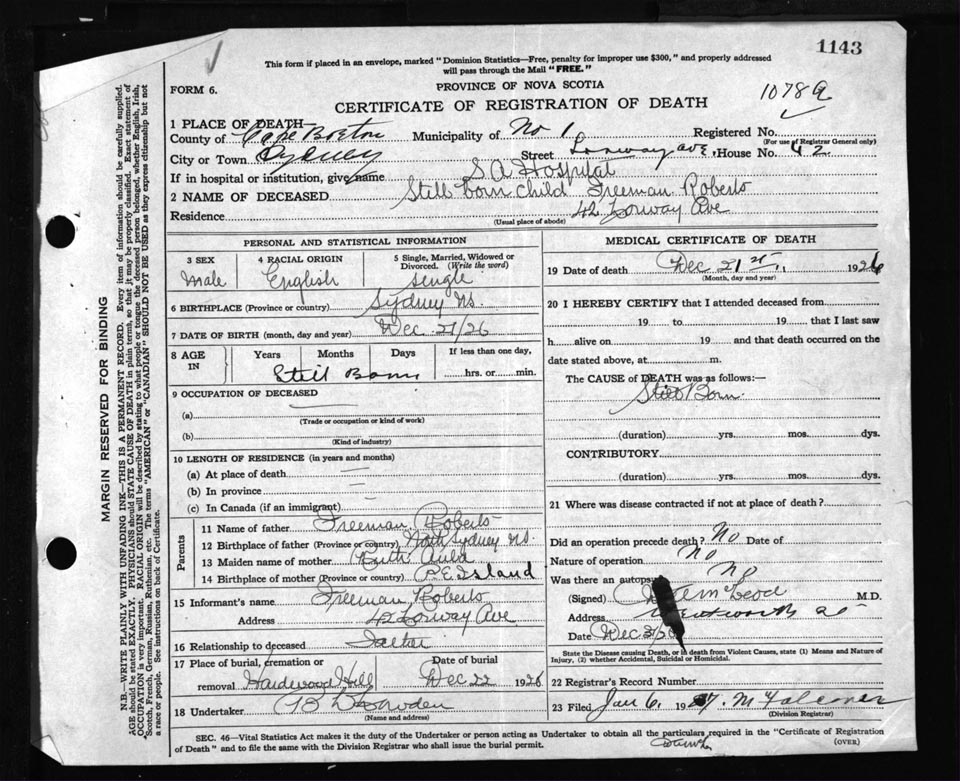 1143
This form if placed in an envelope, marked "Dominion Statistics—Free, penalty for improper use $300," and properly addressed
will pass through the Mail "FREE."
FORM 6.
PROVINCE OF NOVA SCOTIA
1078
CERTIFICATE OF REGISTRATION OF DEATH
1 PLACE OF DEATH—
County of Cape Breton Municipality of No 1 Registered No.
(For use of Registrar General only)
City or Town Sydney Street Lorway ave, House No. 42
If in hospital or institution, give name S A Hospital
2 NAME OF DECEASED Still born child Freeman Roberts
Residence 42 Lorway Ave
(Usual place of abode)
PERSONAL AND STATISTICAL INFORMATION
3 SEX
male
4 RACIAL ORIGIN
English
5 Single, Married, Widowed or
Divorced. (Write the word)
single
6 BIRTHPLACE (Province or country) Sydney NS.
7 DATE OF BIRTH (month, day and year) Dec 21/26
8 AGE IN Years Months Days If less than one day,
Still Born hrs. or min.
9 OCCUPATION OF DECEASED
(a)
(Trade or occupation or kind of work)
(b)
(Kind of industry)
10 LENGTH OF RESIDENCE (in years and months)
(a) At place of death —
(b) In province —
(c) In Canada (if an immigrant) —
Parents
11 Name of father Freeman Roberts
12 Birthplace of father (Province or country) North Sydney NS.
13 Maiden name of mother Ruth Auld
14 Birthplace of mother (Province or country) P.E Island
15 Informant's name Freeman Roberts
Address 42 Lorway Ave
16 Relationship to deceased Father
17 Place of burial, cremation or
removal Hardwood Hill
Date of burial
Dec 22 1926
18 Undertaker
(Name and address)
MEDICAL CERTIFICATE OF DEATH
19 Date of death Dec 21st, 1926
(Month, day and year)
20 I HEREBY CERTIFY that I attended deceased from
19 to 19 that I last saw
h alive on 19 and that death occurred on the
date stated above, at m.
The CAUSE of DEATH was as follows:—
Still Born
(duration) yrs. mos. dys.
CONTRIBUTORY
(duration) yrs. mos. dys.
21 Where was disease contracted if not at place of death?
Did an operation precede death? No Date of
Nature of operation No
Was there an autopsy No
(Signed) McLeod M.D.
Address Wentworth
Date Dec
State the Disease causing Death, or in death from Violent Causes, state (1) Means and Nature of
Injury, (2) whether Accidental, Suicidal or Homicidal.
22 Registrar's Record Number
23 Filed Jan 6, 19
(Division Registrar)
SEC. 46—Vital Statistics Act makes it the duty of the Undertaker or person acting as Undertaker to obtain all the particulars required in the "Certificate of Registration
of Death" and to file the same with the Division Registrar who shall issue the burial permit.
(OVER)
MARGIN RESERVED FOR BINDING
N.B.—WRITE PLAINLY WITH UNFADING INK—THIS IS A PERMANENT RECORD. Every item of information should be carefully supplied.
AGE should be stated EXACTLY. PHYSICIANS should STATE CAUSE OF DEATH in plain terms, so that it may be properly classified. Exact statement of
OCCUPATION is very important. RACIAL ORIGIN will be described by stating to what people or tongue the deceased person belonged, whether English, Irish,
Scotch, French, German, Russian, Ruthenian, etc. The terms "AMERICAN" or "CANADIAN" SHOULD NOT BE USED as they express citizenship but not
a race or people. See instructions on back of Certificate.